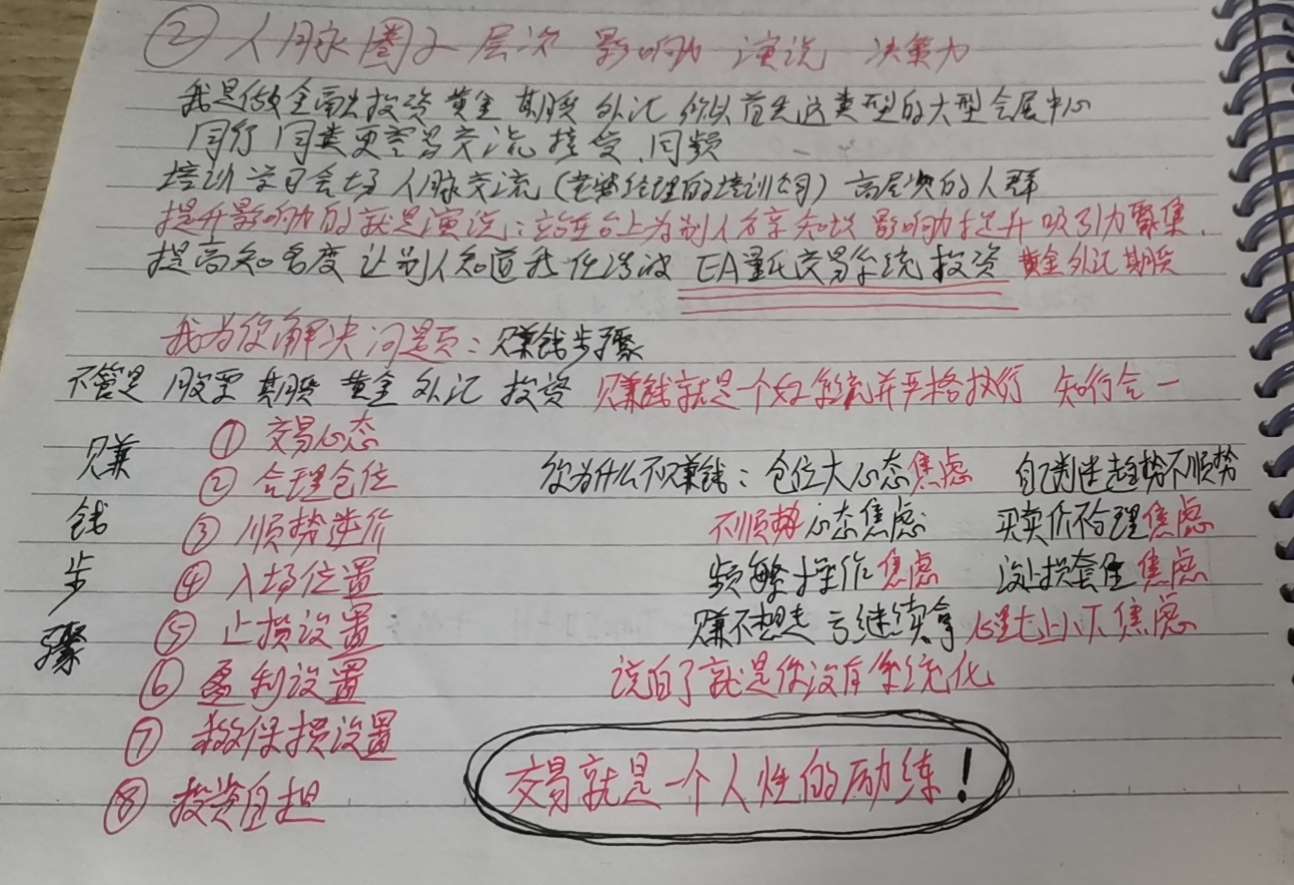 ② 人脉圈子 层次 影响力 演说 决策力
我是做金融投资 黄金 期股 外汇 所以首先这类型的大型会展中心
同行 同类更容易交流 接受.同频
培训学习会场 人脉交流(老婆经理的培训公司) 高层次的人群
提升影响力的就是演说:站在台上为别人分享知识 影响力提升 吸引力聚集.
提高知名度 让别人知道我在 EA量化交易系统投资 黄金外汇期股
我为你解决问题:赚钱步骤
不管是 股票 期股 黄金 外汇 投资 赚钱就是一个好系统并严格执行 知行合一
赚钱步骤
① 交易心态
② 合理仓位
③ 顺势进价
④ 入场位置
⑤ 止损设置
⑥ 盈利设置
⑦ 保损设置
⑧ 投资自担
你为什么不赚钱:仓位大心态焦虑 自己判断趋势不顺势
不顺势心态焦虑 买卖价不合理焦虑
频繁操作焦虑 没止损套住焦虑
赚不想走 亏继续拿 心里七上八下焦虑
说白了就是你没有系统化
交易就是一个人性的励练!